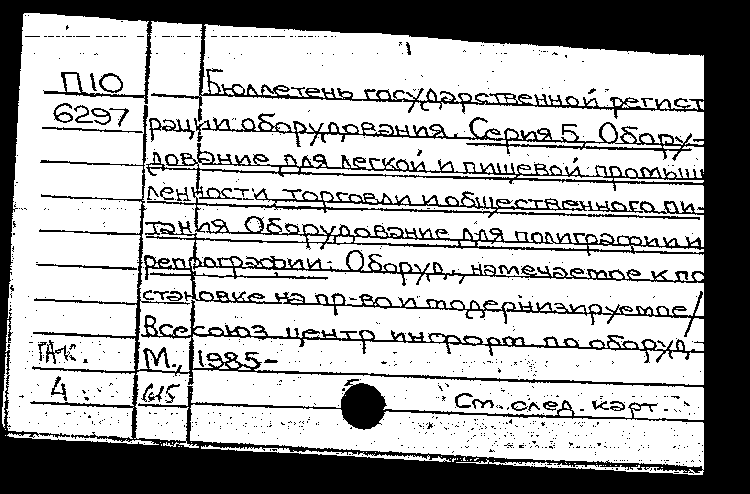 П10 Бюллетень государственной регист
6297 рации оборудования. Серия 5, Обору-
дование для легкой и пищевой промыш
ленности, торговли и общественного пи-
тания. Оборудование для полиграфии и
репрографии: Оборуд., намечаемое к по
становке на пр-во и модернизируемое/
Всесоюз центр информ по оборуд.-
М., 1985-
4 615 См. след. карт.